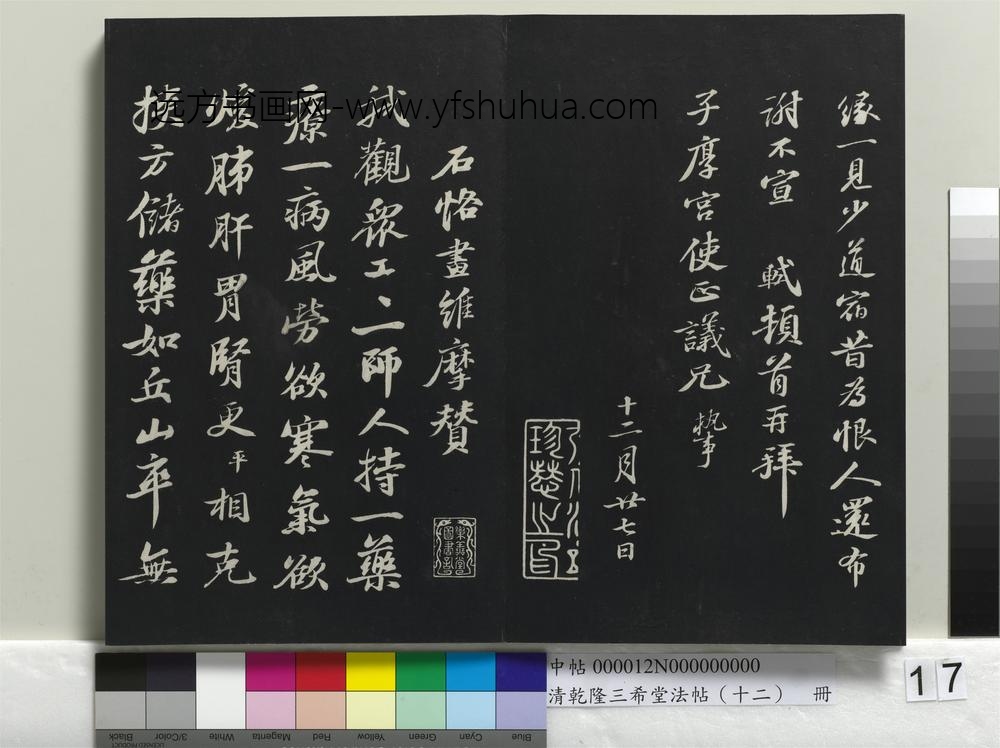 緣一見少道宿昔為恨人還布
謝不宣 軾頓首再拜
子厚宮使正議兄執事
十二月廿七日
石恪畫維摩贊
我觀眾工工二師人持一藥
療一病風勞欲寒氣欲
煖肺肝胃腎更平相克
挾方儲藥如丘山卒無
远方书画网-www.yfshuhua.com
中帖 000012N000000000
清乾隆三希堂法帖（十二） 冊
17
Black
3/Color
White
Magenta
Red
Yellow
Green
Cyan
Blue